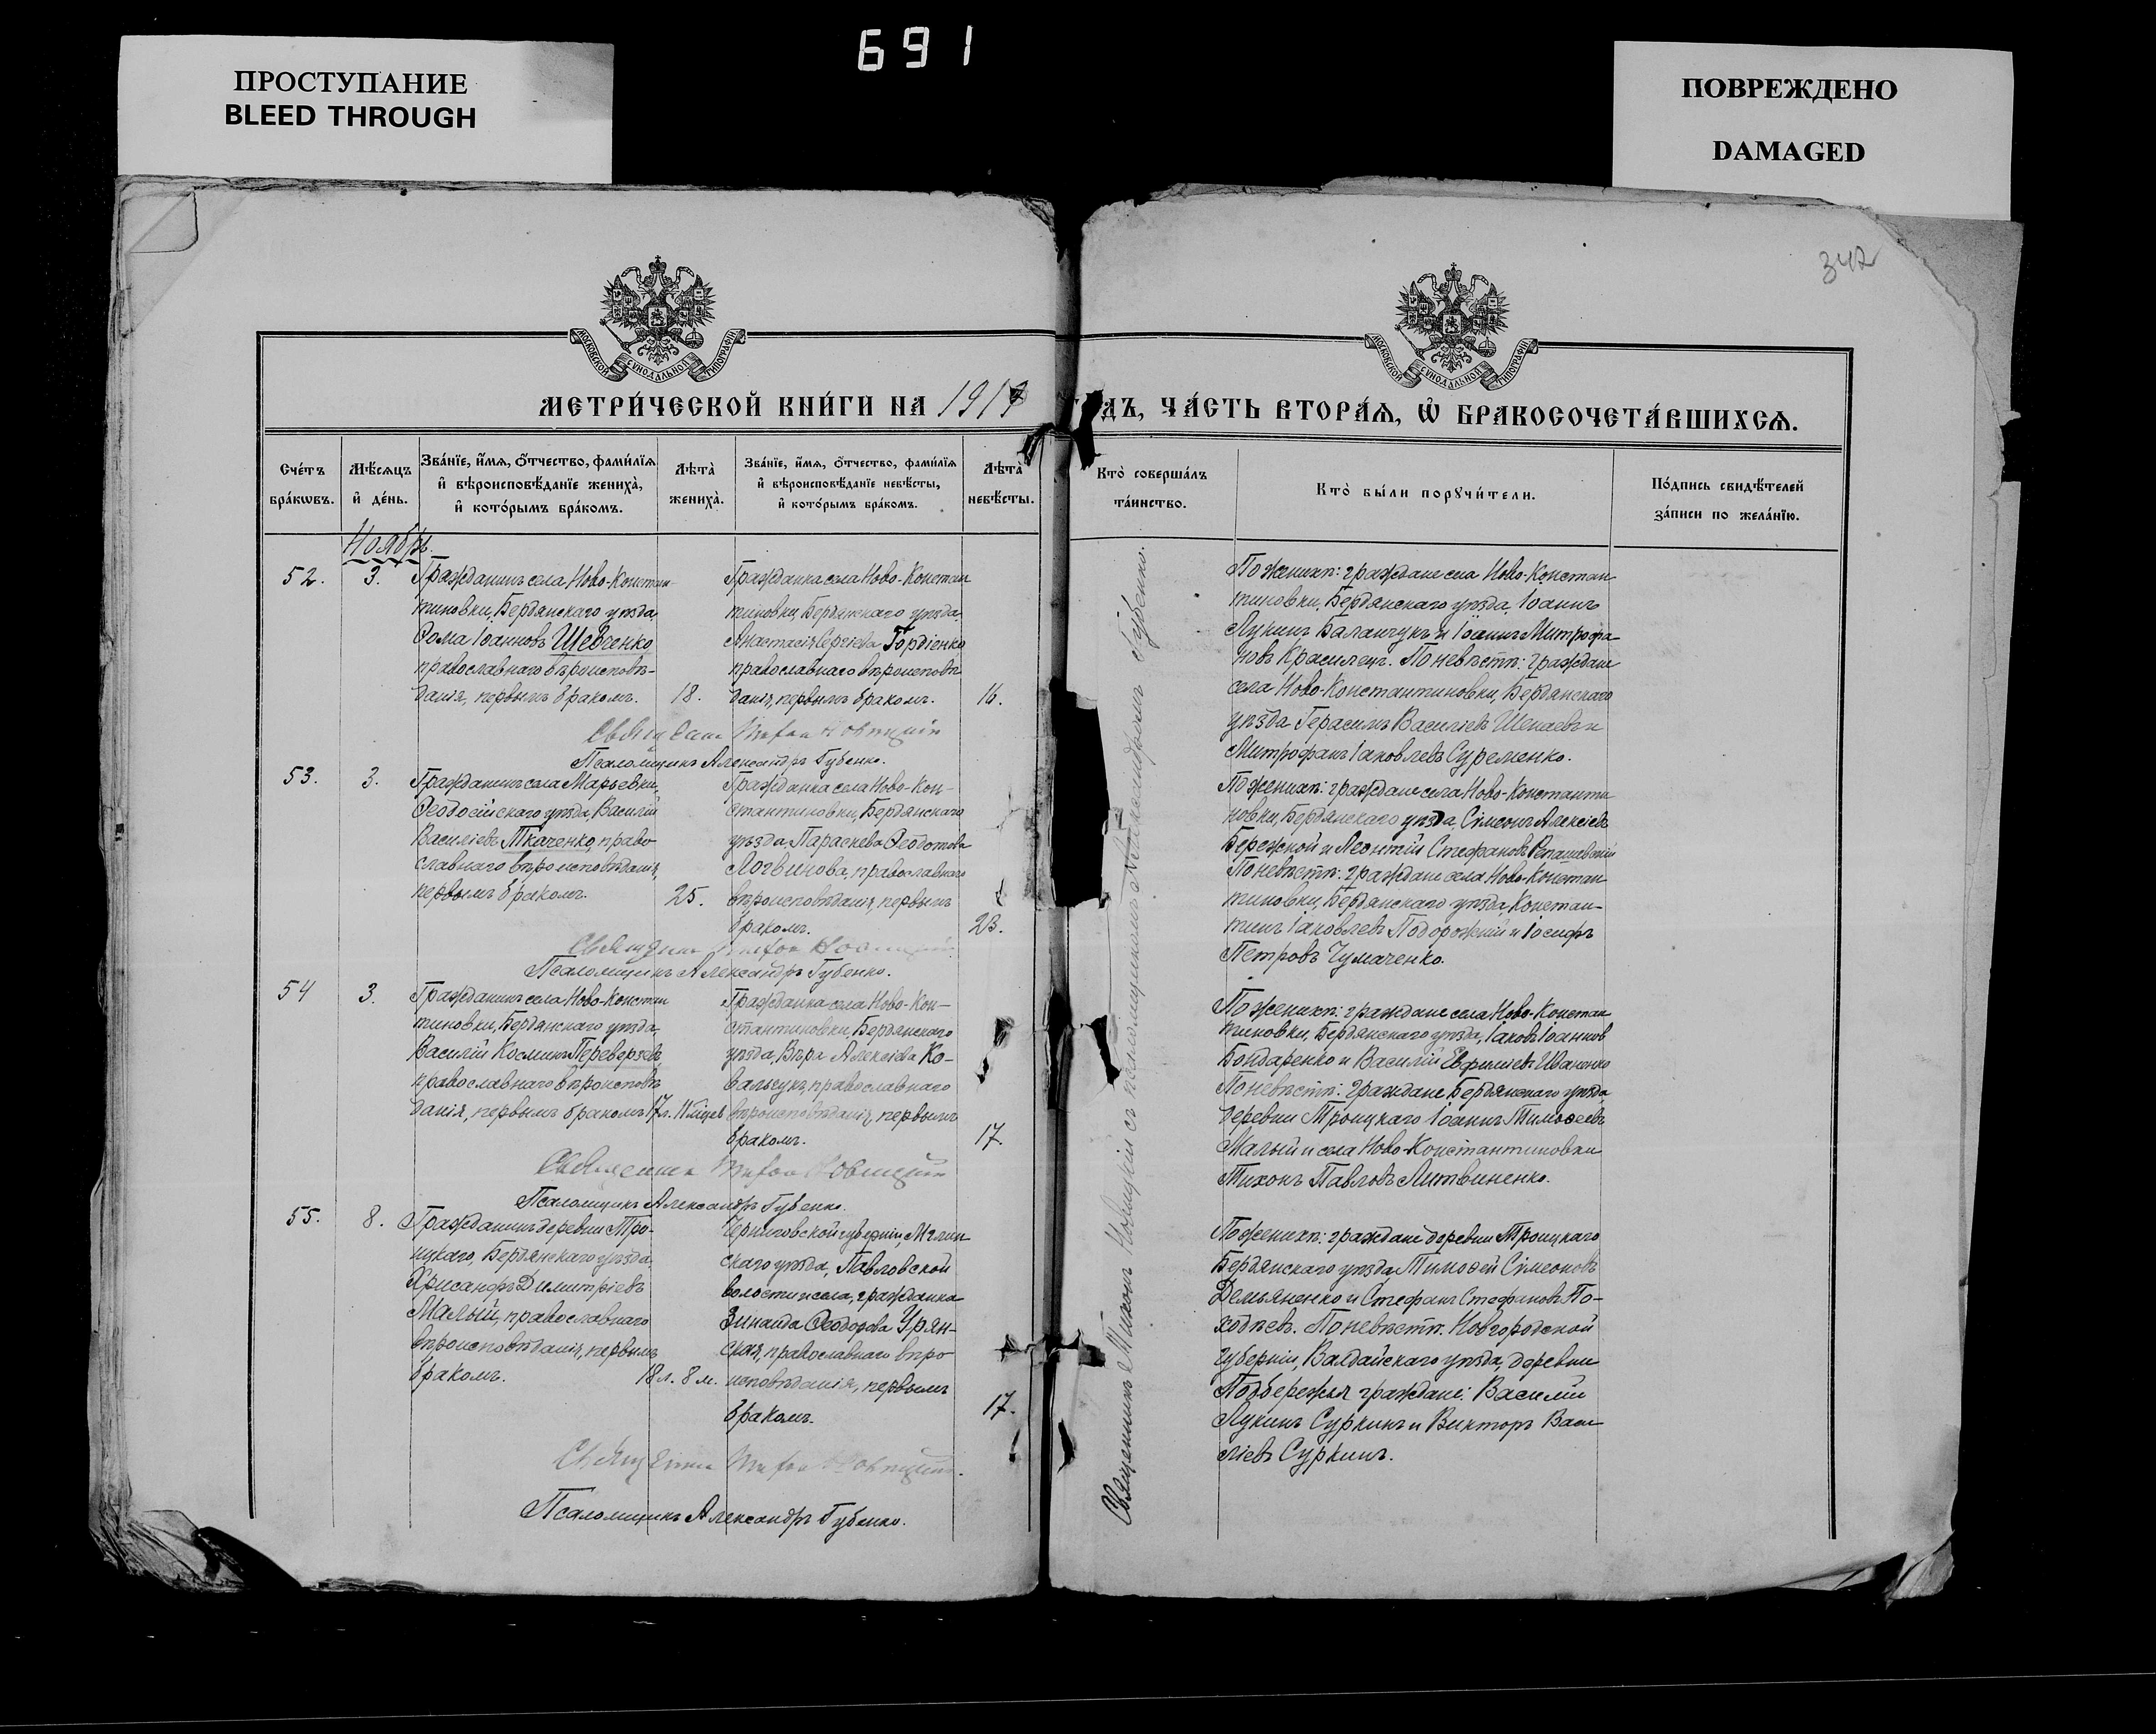 691
ПРОСТУПАНИЕ
BLEED THROUGH
ПОВРЕЖДЕНО
DAMAGED
342
МОСКОВСКОЙ СУНОДАЛЬНОЙ ТИПОГРАФІИ
МОСКОВСКОЙ СУНОДАЛЬНОЙ ТИПОГРАФІИ
МЕТРИ́ЧЕСКОЙ КНИ́ГИ НА 191
ЧА́СТЬ ВТОРА́Ѧ, Ѽ БРАКОСОЧЕТА́ВШИХСѦ.
Сче́тъ
бра́кѡвъ.
Мѣ́сѧцъ
и҆ де́нь.
Зва́нїе, и҆́мѧ, ѻ҆́тчество, фами́лїѧ
и҆ вѣроисповѣ́данїе жениха̀,
и҆ кото́рымъ бра́комъ.
Лѣта̀
жениха̀.
Зва́нїе, и҆́мѧ, ѻ҆́тчество, фами́лїѧ
и҆ вѣроисповѣ́данїе невѣ́сты,
и҆ кото́рымъ бра́комъ.
Лѣта̀
невѣ́сты.
Кто̀ соверша́лъ
та́инство.
Кто̀ бы́ли порꙋчи́тели.
По́дпись свидѣ́телей
за́писи по жела́нїю.
Ноябрь.
52.
3.
Гражданинъ села Ново-Констан-
тиновки, Бердянскаго уѣзда,
Ѳома Іоанновъ Шевченко
православнаго вѣроисповѣ-
данія, первымъ бракомъ.
18.
Гражданка села Ново-Констан
тиновки, Бердянскаго уѣзда,
Анастасія Сергіева Гордіенко
православнаго вѣроисповѣ
данія, первымъ бракомъ.
16.
По женихѣ: граждане села Ново-Констан
тиновки, Бердянскаго уѣзда, Іоаннъ
Лукинъ Баланчукъ и Іоаннъ Митрофа-
новъ Красилецъ. По невѣстѣ: граждане
села Ново-Константиновки, Бердянскаго
уѣзда Герасимъ Василіевъ и
Митрофанъ Іаковлевъ Суременко.
Псаломщикъ Александръ Губенко.
53.
3.
Гражданинъ села Марьевки,
Ѳеодосійскаго уѣзда, Василій
Василіевъ Ткаченко, право
славнаго вѣроисповѣданія,
первымъ бракомъ.
25.
Гражданка села Ново-Кон-
стантиновки, Бердянскаго
уѣзда, Параскева Ѳеодотова
Логвинова, православнаго
вѣроисповѣданія, первымъ
бракомъ.
23.
По женихѣ: граждане села Ново-Константи
новки, Бердянскаго уѣзда, Сѵмеонъ Алексіевъ
Бережной и Леонтій Стефановъ
По невѣстѣ: граждане села Ново-Констан
тиновки, Бердянскаго уѣзда, Констан-
тинъ Іаковлевъ Подорожній и Іосифъ
Петровъ Чумаченко.
Псаломщикъ Александръ Губенко.
54
3.
Гражданинъ села Ново-Констан
тиновки, Бердянскаго уѣзда,
Василій Косминъ Переверзевъ
православнаго вѣроисповѣ
данія, первымъ бракомъ
17 л. 11 мѣсяц.
Гражданка села Ново-Кон-
стантиновки, Бердянскаго
уѣзда, Вѣра Алексіева Ко-
вальчукъ, православнаго
вѣроисповѣданія, первымъ
бракомъ.
17.
По женихѣ: граждане села Ново-Констан
тиновки, Бердянскаго уѣзда, Іаковъ Іоанновъ
Бондаренко и Василій Евфиміевъ Иваненко
По невѣстѣ: граждане Бердянскаго уѣзда
деревни Троицкаго Іоаннъ Тимоѳеевъ
Малый и села Ново-Константиновки
Тихонъ Павловъ Литвиненко.
Псаломщикъ Александръ Губенко.
55.
8.
Гражданинъ деревни Тро-
ицкаго, Бердянскаго уѣзда,
Хрисанѳъ Димитріевъ
Малый, православнаго
вѣроисповѣданія, первымъ
бракомъ.
18 л. 8 м.
Черниговской губерніи, Мглин
скаго уѣзда, Павловской
волости и села, гражданка
Зинаида Ѳеодорова Урян-
ская, православнаго вѣро
исповѣданія, первымъ
бракомъ.
17.
По женихѣ: граждане деревни Троицкаго
Бердянскаго уѣзда Тимоѳей Сѵмеоновъ
Демьяненко и Стефанъ Стефановъ По-
ходѣевъ. По невѣстѣ: Новгородской
губерніи, Валдайскаго уѣзда, деревни
Подбережья граждане: Василій
Лукинъ Суркинъ и Викторъ Васи
ліевъ Суркинъ.
Псаломщикъ Александръ Губенко.
Священникъ Тихонъ Новицкій съ псаломщикомъ Александромъ Губенко.